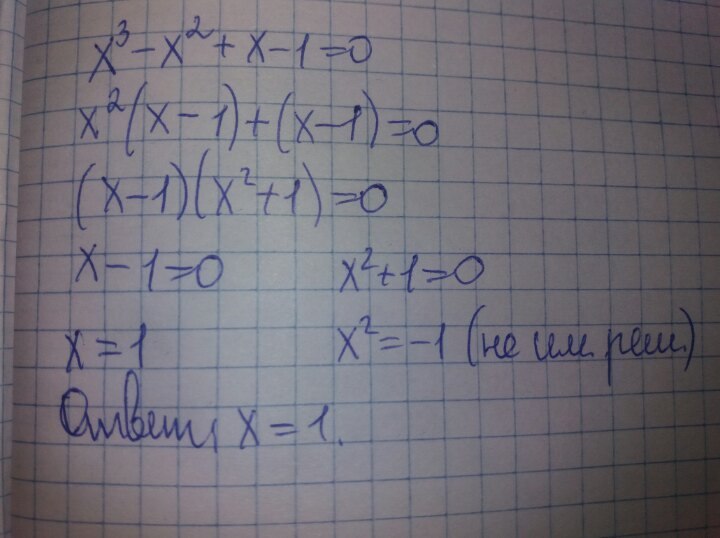 x³ - x² + x - 1 = 0
x²(x - 1) + (x - 1) = 0
(x - 1)(x² + 1) = 0
x - 1 = 0 x² + 1 = 0
x = 1 x² = -1 (не им. реш.)
Ответ: x = 1.